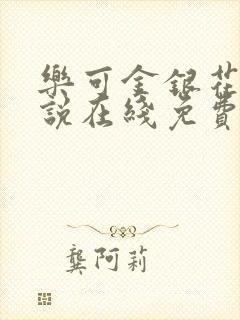 樂可金銀花
說在綫免費
龔阿莉